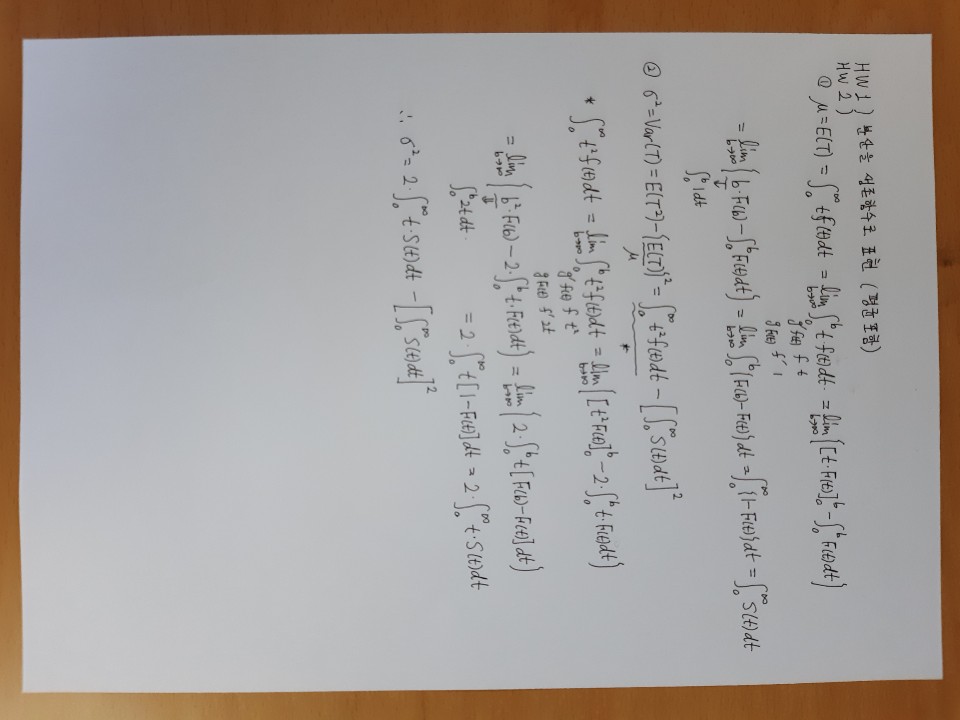 HW1) 분산을 생존함수로 표현 (평균포함)
HW2)
① μ=E(T)=∫₀^∞ tf(t)dt = lim_{b→∞} ∫₀^b t·f(t)dt. = lim_{b→∞} {[t·F(t)]₀^b - ∫₀^b F(t)dt}
g' f(t) f t
g F(t) f' 1
= lim_{b→∞} {b·F(b) - ∫₀^b F(t)dt} = lim_{b→∞} ∫₀^b {F(b)-F(t)}dt = ∫₀^∞ {1-F(t)}dt = ∫₀^∞ S(t)dt
⇓
∫₀^b 1dt
② σ²=Var(T)=E(T²)-{E(T)}² = ∫₀^∞ t²f(t)dt - [∫₀^∞ S(t)dt]²
μ *
* ∫₀^∞ t²f(t)dt = lim_{b→∞} ∫₀^b t²f(t)dt = lim_{b→∞} {[t²F(t)]₀^b - 2·∫₀^b t·F(t)dt}
g' f(t) f t²
g F(t) f' 2t
= lim_{b→∞} {b²·F(b) - 2·∫₀^b t·F(t)dt} = lim_{b→∞} {2·∫₀^b t[F(b)-F(t)]dt}
⇓
∫₀^b 2tdt. = 2·∫₀^∞ t[1-F(t)]dt = 2·∫₀^∞ t·S(t)dt
∴ σ² = 2·∫₀^∞ t·S(t)dt - [∫₀^∞ S(t)dt]²